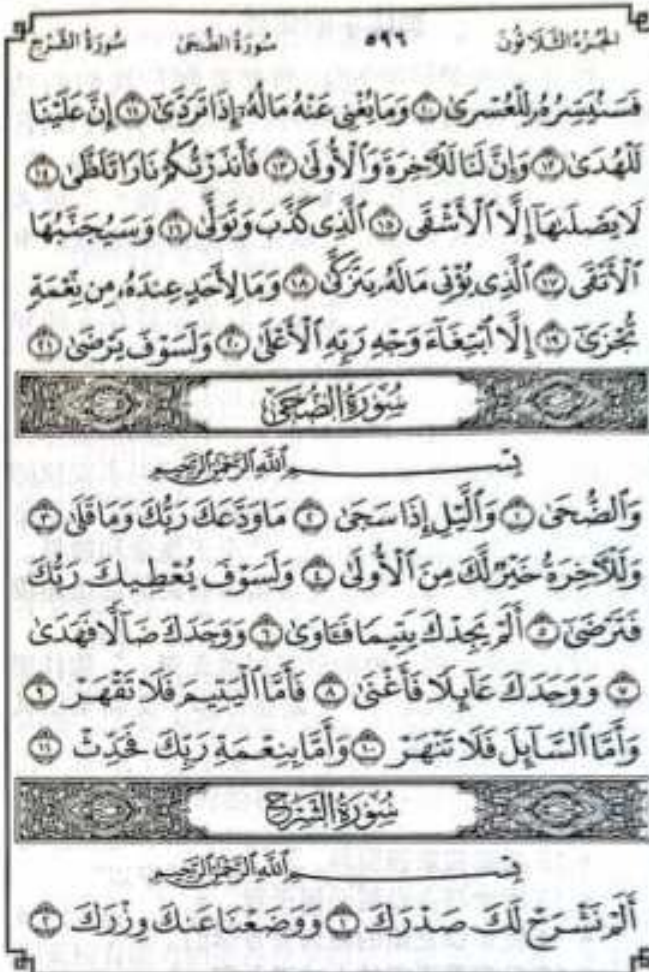 الجزء الثلاثون ٥٩٦ سورة الضحى سورة الشرح
فَسَنُيَسِّرُهُۥ لِلْعُسْرَىٰ ١٠ وَمَا يُغْنِى عَنْهُ مَالُهُۥٓ إِذَا تَرَدَّىٰٓ ١١ إِنَّ عَلَيْنَا
لَلْهُدَىٰ ١٢ وَإِنَّ لَنَا لَلْـَٔاخِرَةَ وَٱلْأُولَىٰ ١٣ فَأَنذَرْتُكُمْ نَارًا تَلَظَّىٰ ١٤
لَا يَصْلَىٰهَآ إِلَّا ٱلْأَشْقَى ١٥ ٱلَّذِى كَذَّبَ وَتَوَلَّىٰ ١٦ وَسَيُجَنَّبُهَا
ٱلْأَتْقَى ١٧ ٱلَّذِى يُؤْتِى مَالَهُۥ يَتَزَكَّىٰ ١٨ وَمَا لِأَحَدٍ عِندَهُۥ مِن نِّعْمَةٍ
تُجْزَىٰٓ ١٩ إِلَّا ٱبْتِغَآءَ وَجْهِ رَبِّهِ ٱلْأَعْلَىٰ ٢٠ وَلَسَوْفَ يَرْضَىٰ ٢١
سُورَةُ الضُّحَىٰ
بِسْمِ ٱللَّهِ ٱلرَّحْمَٰنِ ٱلرَّحِيمِ
وَٱلضُّحَىٰ ١ وَٱلَّيْلِ إِذَا سَجَىٰ ٢ مَا وَدَّعَكَ رَبُّكَ وَمَا قَلَىٰ ٣
وَلَلْـَٔاخِرَةُ خَيْرٌ لَّكَ مِنَ ٱلْأُولَىٰ ٤ وَلَسَوْفَ يُعْطِيكَ رَبُّكَ
فَتَرْضَىٰٓ ٥ أَلَمْ يَجِدْكَ يَتِيمًا فَـَٔاوَىٰ ٦ وَوَجَدَكَ ضَآلًّا فَهَدَىٰ
٧ وَوَجَدَكَ عَآئِلًا فَأَغْنَىٰ ٨ فَأَمَّا ٱلْيَتِيمَ فَلَا تَقْهَرْ ٩
وَأَمَّا ٱلسَّآئِلَ فَلَا تَنْهَرْ ١٠ وَأَمَّا بِنِعْمَةِ رَبِّكَ فَحَدِّثْ ١١
سُورَةُ الشَّرْحِ
بِسْمِ ٱللَّهِ ٱلرَّحْمَٰنِ ٱلرَّحِيمِ
أَلَمْ نَشْرَحْ لَكَ صَدْرَكَ ١ وَوَضَعْنَا عَنكَ وِزْرَكَ ٢